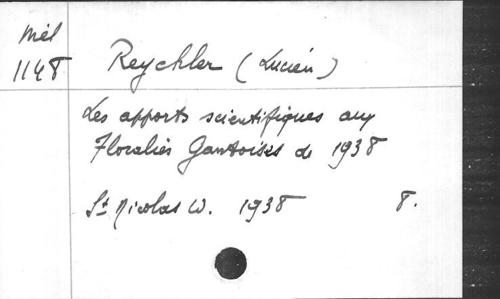 Mél
1148
Reychler (Lucien)
Les apports scientifiques aux
Floralies Gantoises de 1938
St Nicolas W. 1938 8.